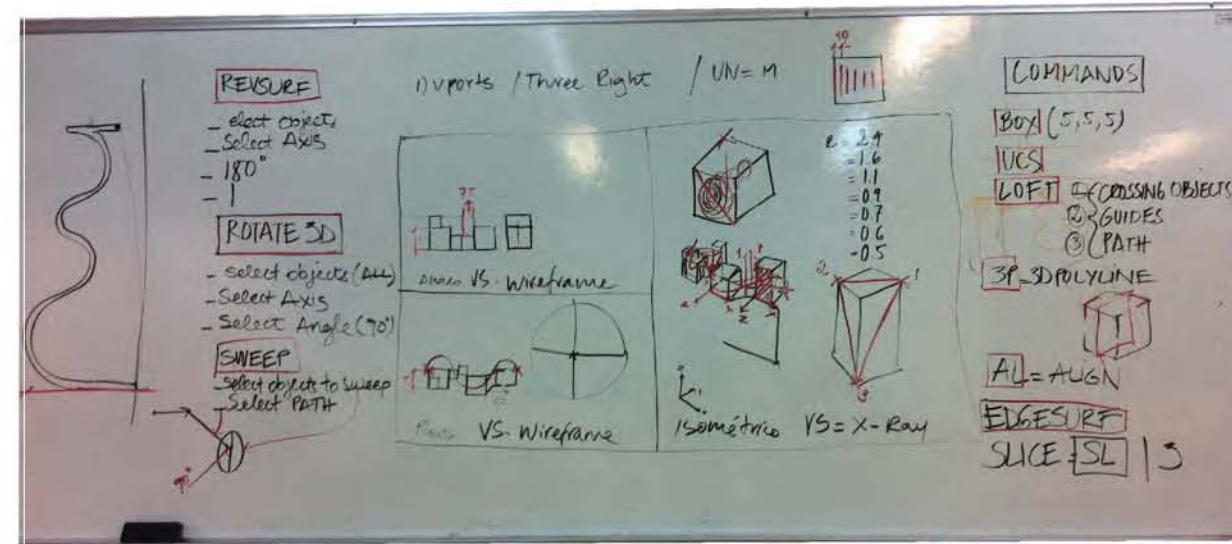 REVSURF
- elect objects
- Select Axis
- 180°
- 1
ROTATE 3D
- select objects (ALL)
- Select Axis
- Select Angle (90°)
SWEEP
- Select objects to sweep
- Select PATH
90°
1) vports / Three Right / UN = M
10
75
VS. Wireframe
VS. Wireframe
e = 2.4
= 1.6
= 1.1
= 0.9
= 0.7
= 0.6
- 0.5
2
1
3
Isométrico VS = X-Ray
COMMANDS
BOX (5,5,5)
UCS
LOFT ① CROSSING OBJECTS
② GUIDES
③ PATH
3P_3DPOLYLINE
AL = ALIGN
EDGESURF
SLICE = SL | 3